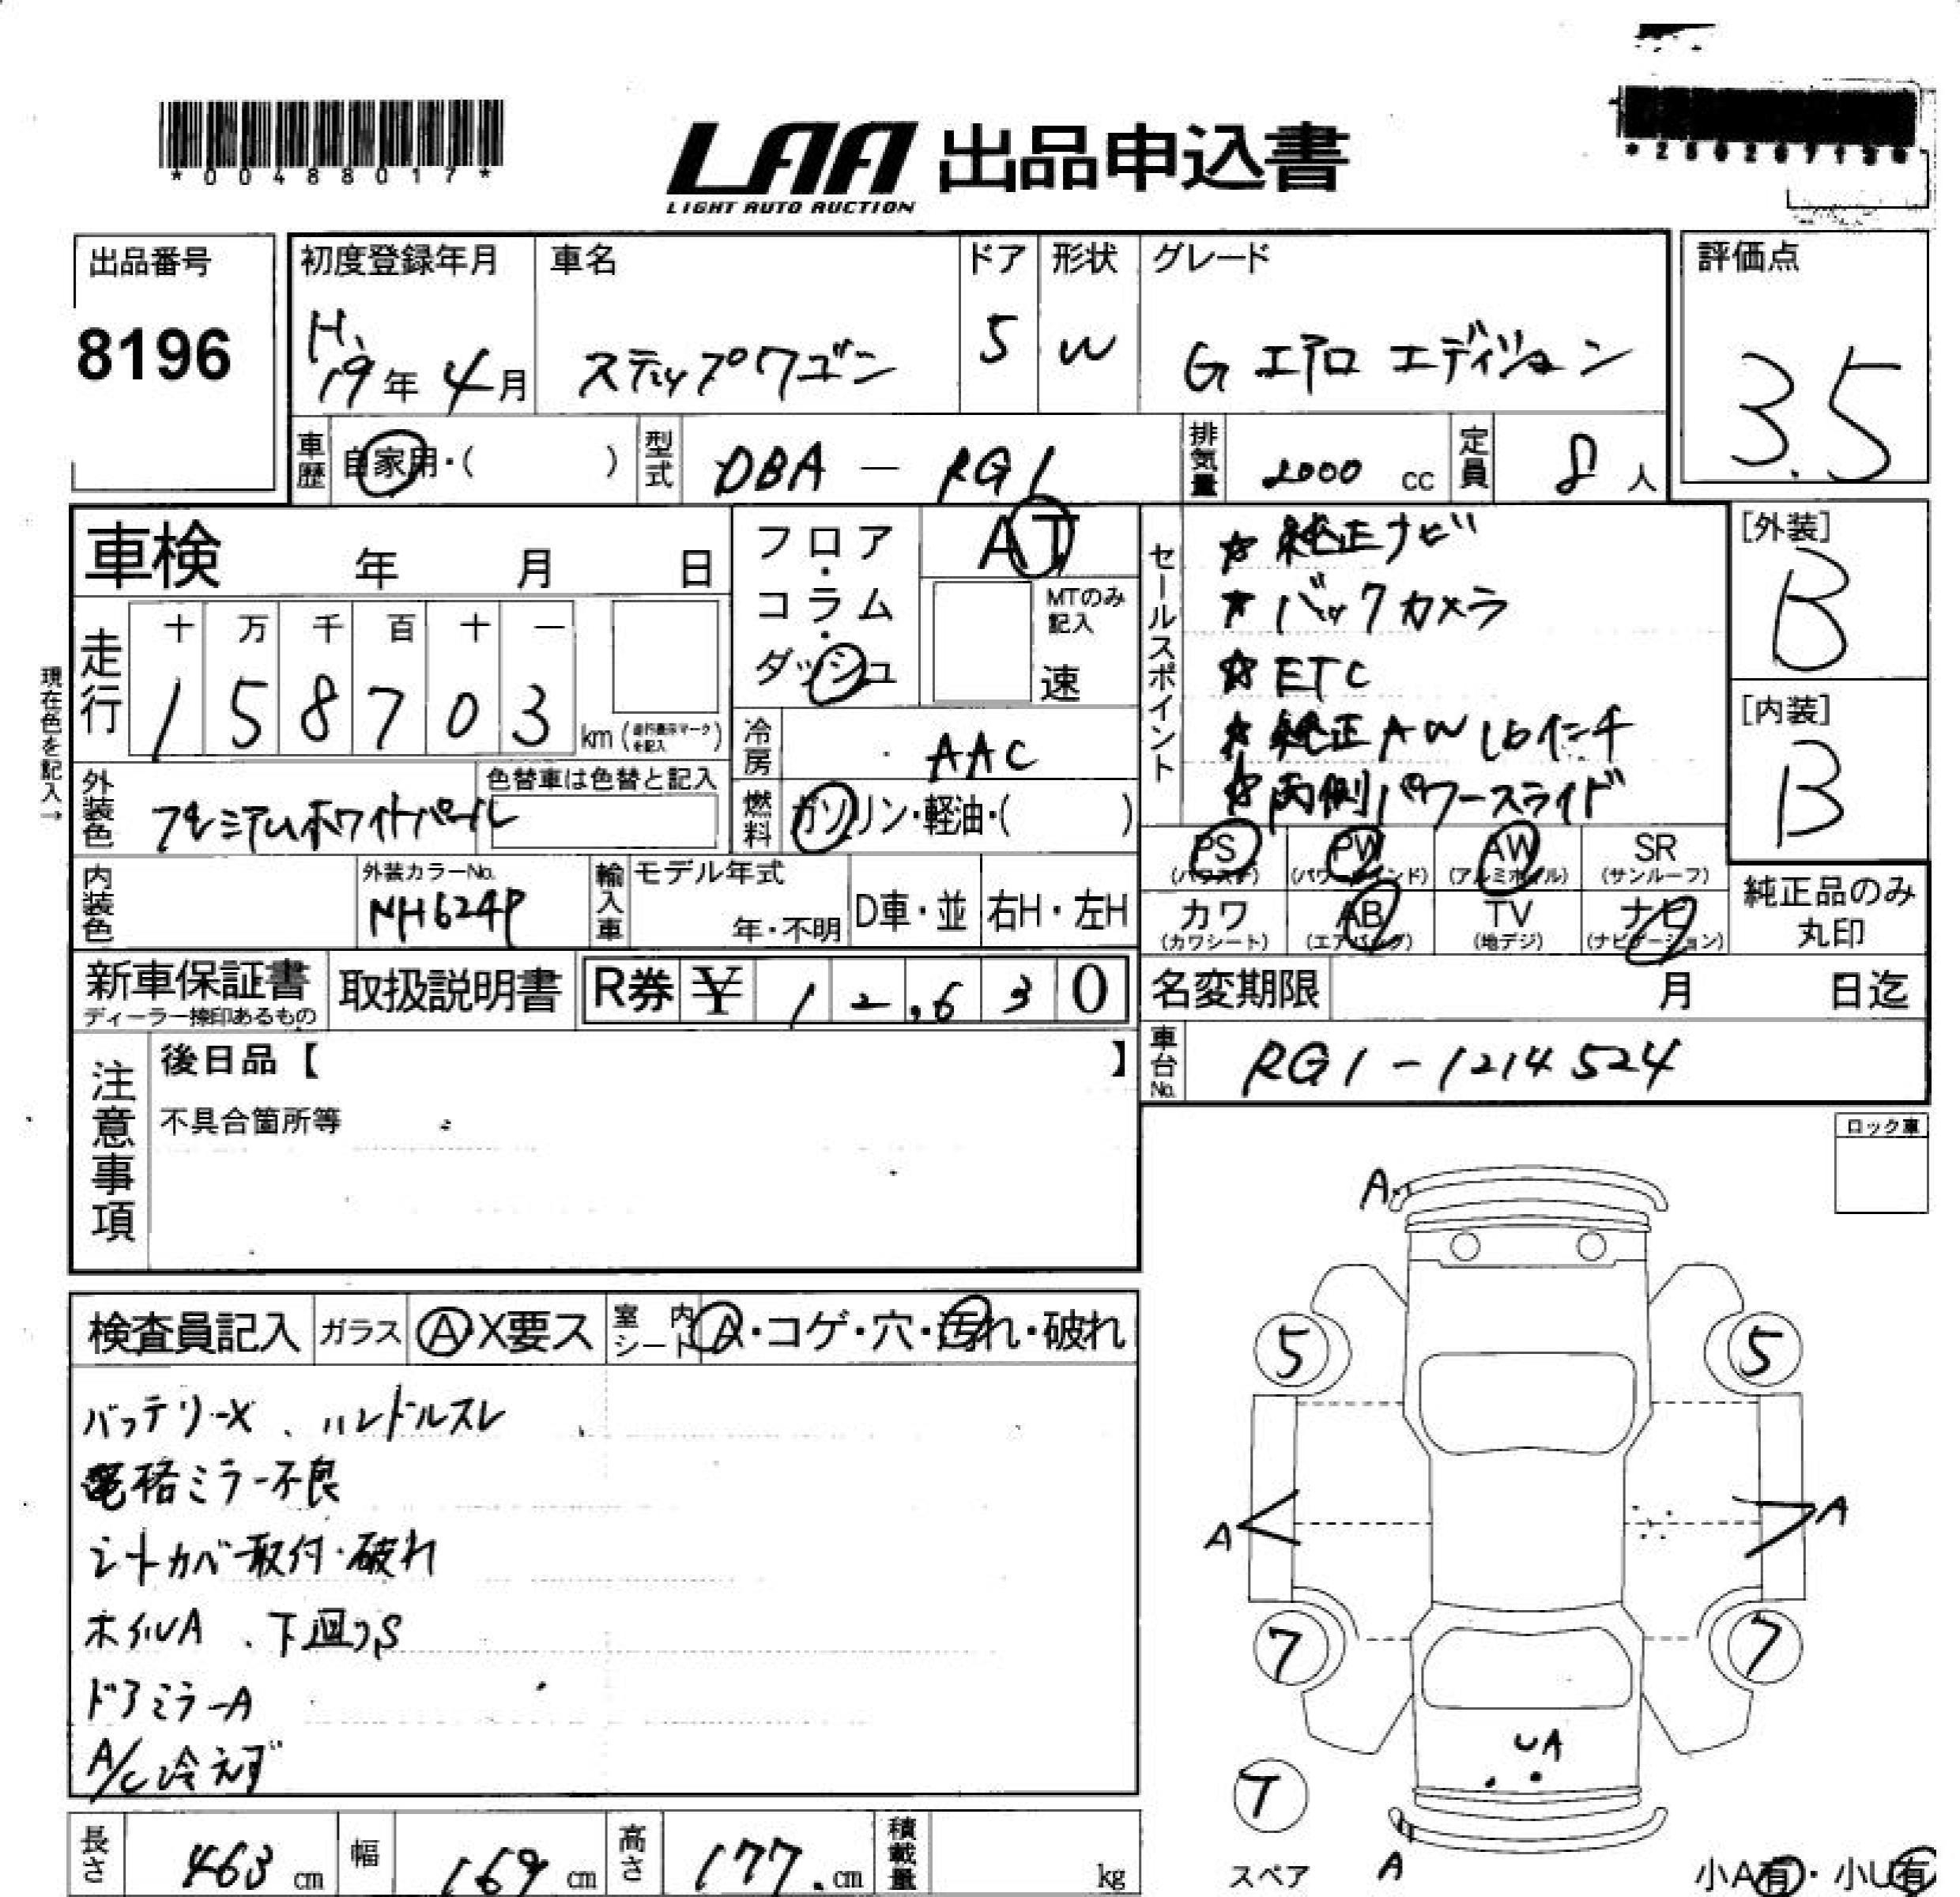 *00488017*
LAA 出品申込書
LIGHT AUTO AUCTION
出品番号
8196
初度登録年月
H.19年 4月
車名
ステップワゴン
ドア
5
形状
W
グレード
G エアロ エディション
評価点
3.5
車歴
自家用・( )
型式
DBA - RG1
排気量
2000 cc
定員
8 人
車検 年 月 日
走行
十 万 千 百 十 一
1 5 8 7 0 3 km (走行表示マークを記入)
現在色を記入→
フロア・コラム・ダッシュ
AT
MTのみ記入
速
冷房
AAC
燃料
ガソリン・軽油・( )
外装色
プレミアムホワイトパール
色替車は色替と記入
内装色
外装カラーNo.
NH624P
輸入車
モデル年式
年・不明
D車・並
右H・左H
セールスポイント
☆ 純正ナビ
☆ バックカメラ
☆ ETC
☆ 純正AW 16インチ
☆ 両側パワースライド
[外装]
B
[内装]
B
PS
(パワステ)
PW
(パワーウインド)
AW
(アルミホイル)
SR
(サンルーフ)
カワ
(カワシート)
AB
(エアバッグ)
TV
(地デジ)
ナビ
(ナビゲーション)
純正品のみ
丸印
新車保証書
ディーラー捺印あるもの
取扱説明書
R券 ¥ 12,630
名変期限 月 日迄
車台No.
RG1-1214524
注意事項
後日品【 】
不具合箇所等
ロック車
検査員記入
ガラス
A・X要ス
室内シート
A・コゲ・穴・汚れ・破れ
バッテリーX、ハンドルスレ
電格ミラー不良
シートカバー取付・破れ
ホイルA、下廻りS
ドアミラーA
A/C冷えず
A
5
5
A
A
7
7
UA
T
スペア
A
小A有・小U有
長さ
463 cm
幅
169 cm
高さ
177. cm
積載量
kg